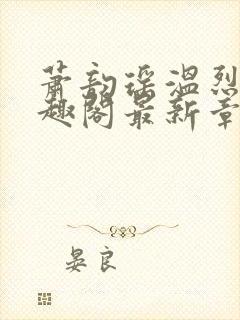 萧韵瑶温烈
趣阁最新章
晏良